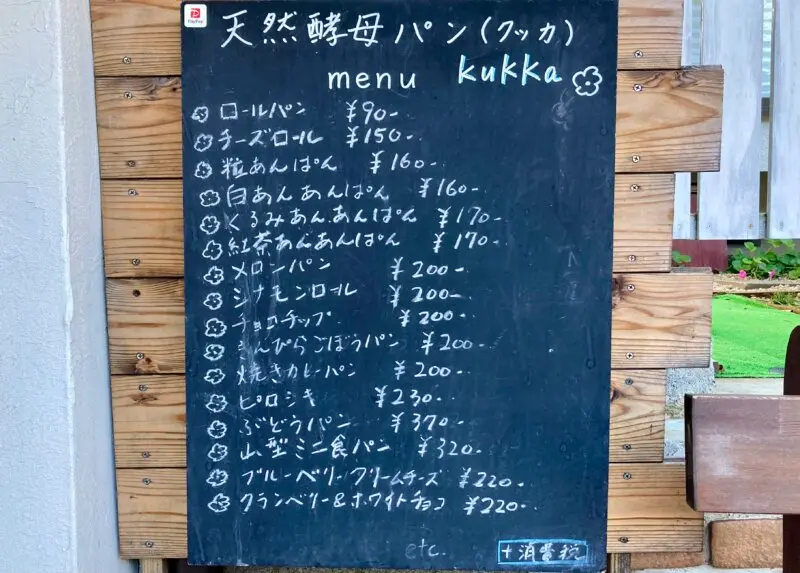 PayPay
天然酵母パン(クッカ)
menu kukka
ロールパン ¥90-
チーズロール ¥150-
粒あんぱん ¥160-
白あんあんぱん ¥160-
くるみあんあんぱん ¥170-
紅茶あんあんぱん ¥170-
メロンパン ¥200-
シナモンロール ¥200-
チョコチップ ¥200-
きんぴらごぼうパン ¥200-
焼きカレーパン ¥200-
ピロシキ ¥230-
ぶどうパン ¥370-
山型ミニ食パン ¥320-
ブルーベリークリームチーズ ¥220-
クランベリー&ホワイトチョコ ¥220-
etc.
+消費税